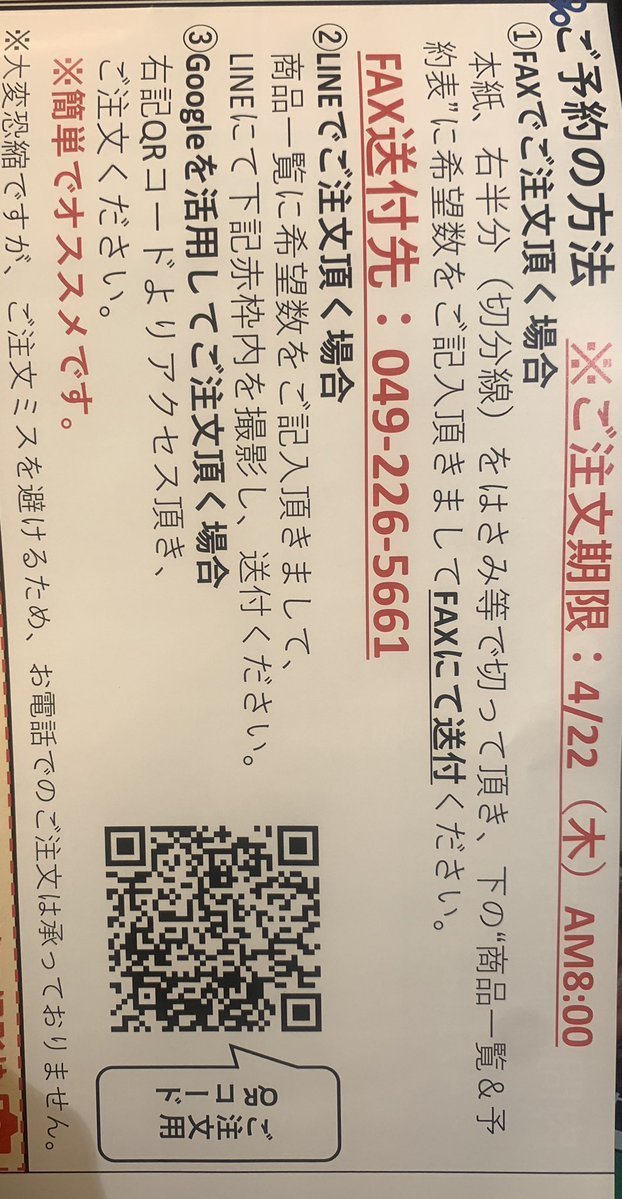 ご予約の方法 ※ご注文期限：4/22（木）AM8:00
①FAXでご注文頂く場合
本紙、右半分（切分線）をはさみ等で切って頂き、下の“商品一覧&予
約表”に希望数をご記入頂きましてFAXにて送付ください。
FAX送付先：049-226-5661
②LINEでご注文頂く場合
商品一覧に希望数をご記入頂きまして、
LINEにて下記赤枠内を撮影し、送付ください。
③Googleを活用してご注文頂く場合
右記QRコードよりアクセス頂き、
ご注文ください。
※簡単でオススメです。
ご注文用
QRコード
※大変恐縮ですが、ご注文ミスを避けるため、お電話でのご注文は承っておりません。